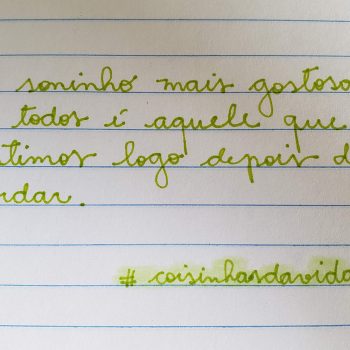 soninho mais gostoso
todos é aquele que
timos logo depois d
rdar.
#coisinhasdavida